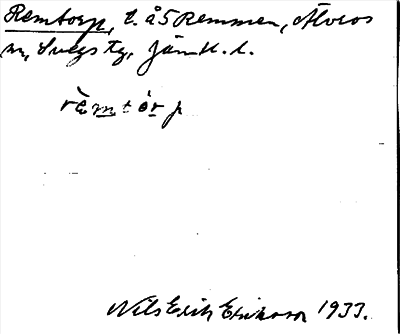 Remtorp, t. å 5 Remmen, Älvros
sn, Svegs tg, Jämtl. l.
rèmtórp
Nils Erik Eriksson 1933.